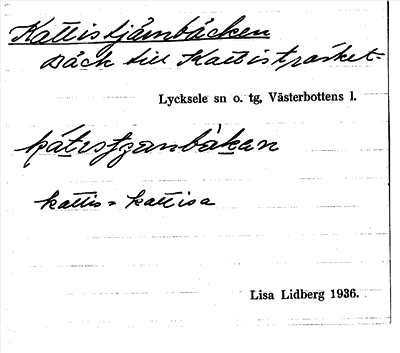 Kattistjärnbäcken
Bäck till Kattisträsket.
Lycksele sn o. tg, Västerbottens l.
kattis = kattisa
Lisa Lidberg 1936.